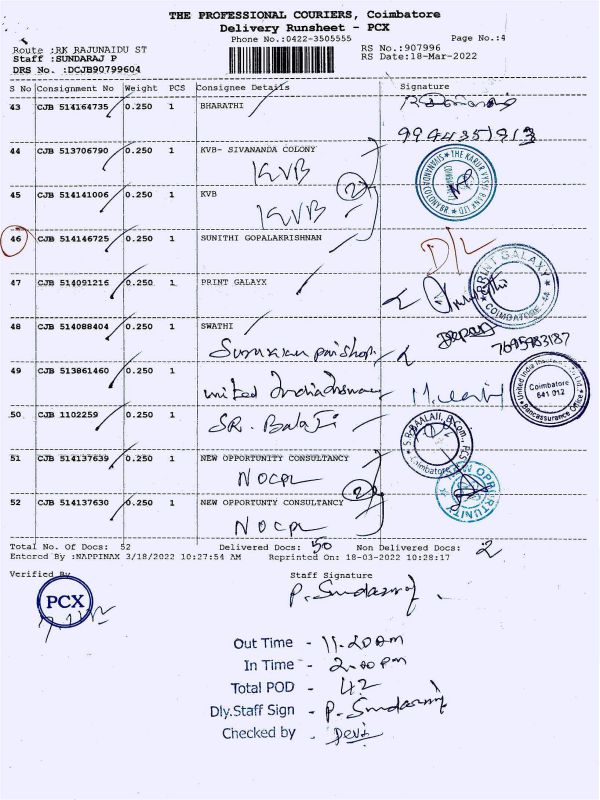 THE PROFESSIONAL COURIERS, Coimbatore
Delivery Runsheet - PCX
Phone No.:0422-3505555 Page No.:4
Route :RK RAJUNAIDU ST RS No.:907996
Staff :SUNDARAJ P RS Date:18-Mar-2022
DRS No. :DCJB90799604
S No Consignment No Weight PCS Consignee Details Signature
43 CJB 514164735 0.250 1 BHARATHI
9944351913
44 CJB 513706790 0.250 1 KVB- SIVANANDA COLONY
KVB
2
THE KARUR VYSYA BANK LTD
45 CJB 514141006 0.250 1 KVB
KVB
46 CJB 514146725 0.250 1 SUNITHI GOPALAKRISHNAN
D/L
47 CJB 514091216 0.250 1 PRINT GALAYX
PRINT GALAXY
COIMBATORE - 44
48 CJB 514088404 0.250 1 SWATHI
7695983187
49 CJB 513861460 0.250 1
United India
United India Insurance Co. Ltd
Coimbatore
641 012
Bancassurance Office
50 CJB 1102259 0.250 1
SR. Balaji
S.R.BAALAJI, B.Com., FCS
Coimbatore
51 CJB 514137639 0.250 1 NEW OPPORTUNITY CONSULTANCY
NOCPL
2
52 CJB 514137630 0.250 1 NEW OPPORTUNTY CONSULTANCY
NOCPL
Total No. Of Docs: 52 Delivered Docs: 50 Non Delivered Docs: 2
Entered By :NAPPINAX 3/18/2022 10:27:54 AM Reprinted On: 18-03-2022 10:28:17
Verified By Staff Signature
PCX
P. Sundararaj
Out Time - 11.20am
In Time - 2.00pm
Total POD - 42
Dly.Staff Sign - P. Sundararaj
Checked by - Devi